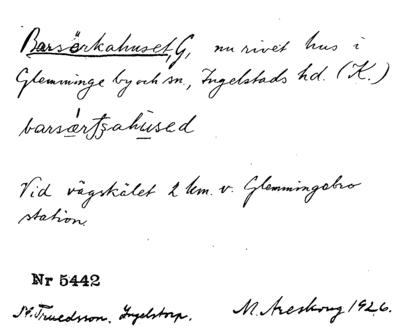 Barsörkahuset, G, nu rivet hus i
Glemminge by och sn., Ingelstads hd. (K.)
Vid vägskälet 2 km. v. Glemmingebro
station.
Nr 5442
Ingelstorp. M. Areskoug 1926.